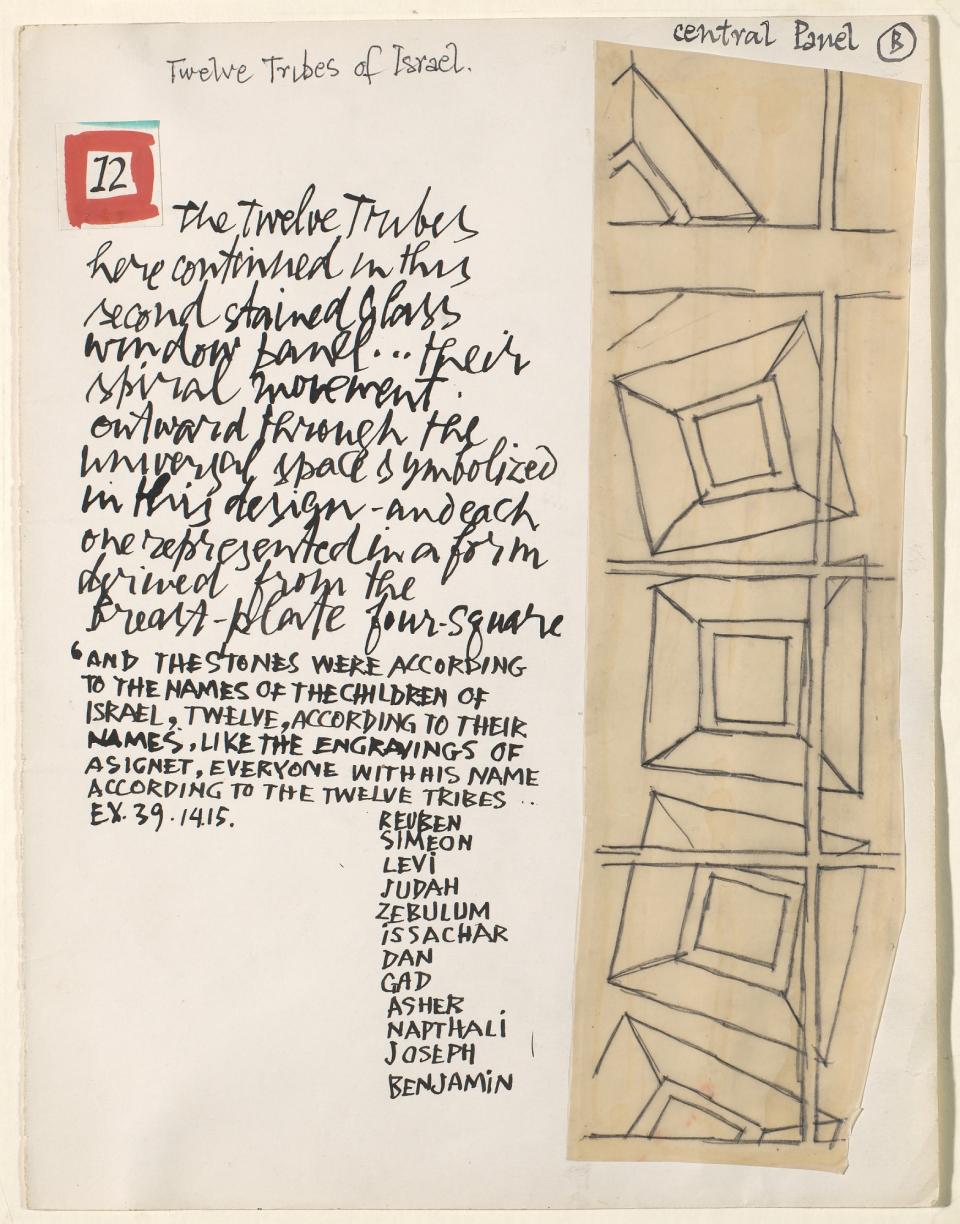 central Panel B
Twelve Tribes of Israel.
12
the Twelve Tribes
here continued in this
second stained glass
window panel... their
spiral movement.
outward through the
universal space symbolized
in this design - and each
one represented in a form
derived from the
breast-plate four-square
"AND THE STONES WERE ACCORDING
TO THE NAMES OF THE CHILDREN OF
ISRAEL, TWELVE, ACCORDING TO THEIR
NAMES, LIKE THE ENGRAVINGS OF
A SIGNET, EVERYONE WITH HIS NAME
ACCORDING TO THE TWELVE TRIBES ..
EX. 39. 14.15.
REUBEN
SIMEON
LEVI
JUDAH
ZEBULUM
ISSACHAR
DAN
GAD
ASHER
NAPTHALI
JOSEPH
BENJAMIN